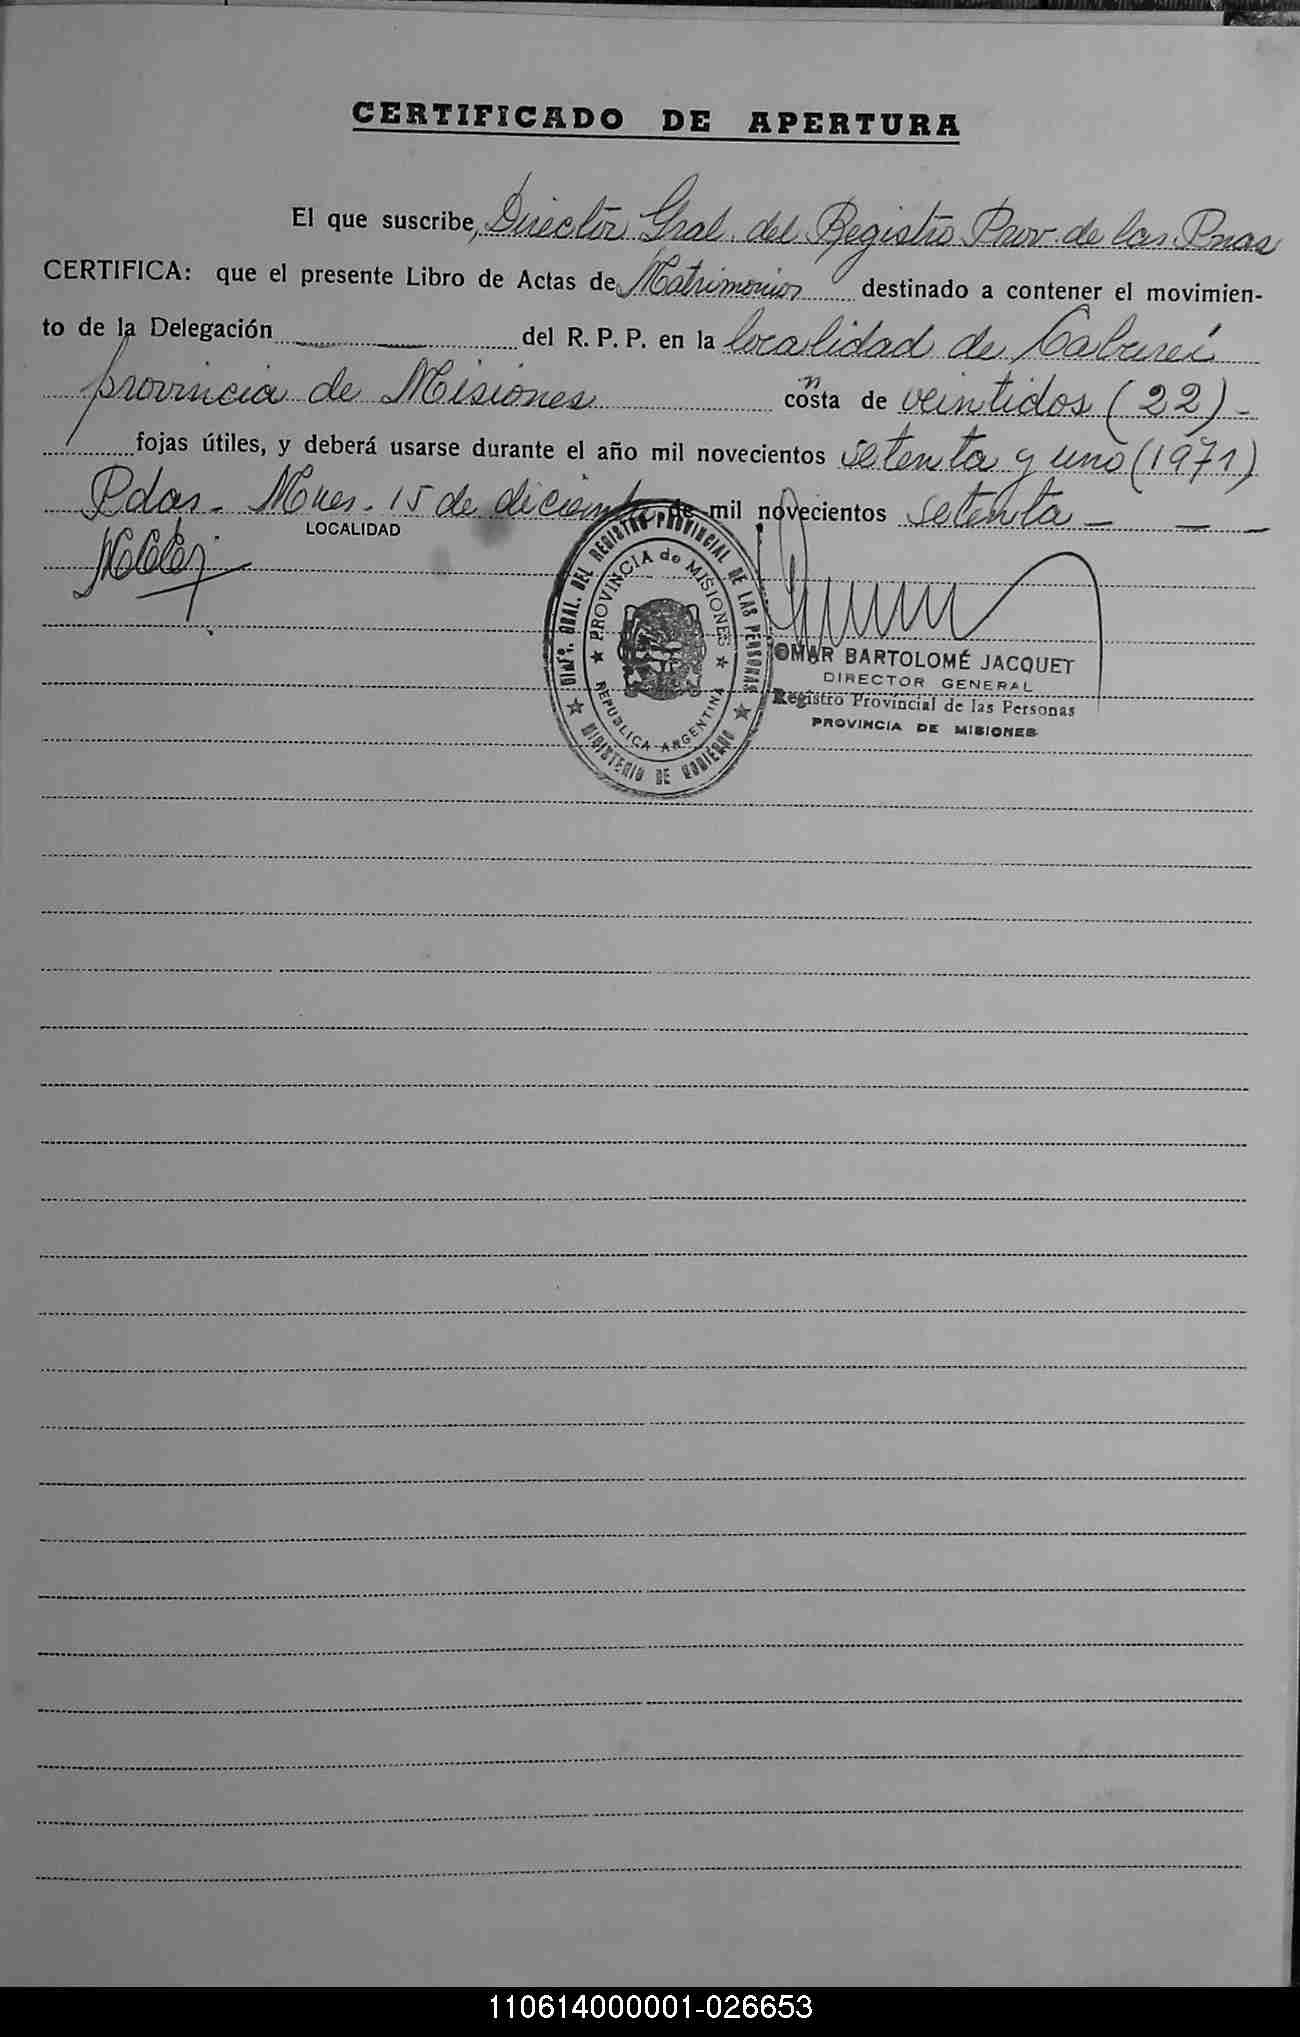 CERTIFICADO DE APERTURA
El que suscribe, Director Gral. del Registro Prov. de las Pnas
CERTIFICA: que el presente Libro de Actas de Matrimonios destinado a contener el movimien-
to de la Delegación del R. P. P. en la localidad de Cabureí
provincia de Misiones consta de veintidos (22) -
fojas útiles, y deberá usarse durante el año mil novecientos setenta y uno (1971)
Pdas - Mnes - 15 de diciembre de mil novecientos setenta - - -
LOCALIDAD
DIRº. GRAL. DEL REGISTRO PROVINCIAL DE LAS PERSONAS
PROVINCIA de MISIONES
REPUBLICA ARGENTINA
MINISTERIO DE GOBIERNO
OMAR BARTOLOMÉ JACQUET
DIRECTOR GENERAL
Registro Provincial de las Personas
PROVINCIA DE MISIONES
110614000001-026653